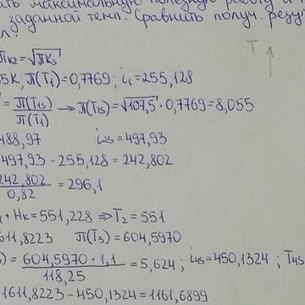 ить максимальную полезную работу и
заданной темп. Сравнить получ. резу
πк2 = √πкs
T ↑
5K, π(T₁) = 0,7769; i₁ = 255,128
= π(T₂s)/π(T₁) → π(T₂s) = √107,5 · 0,7769 = 8,055
488,97 i₂s = 497,93
497,93 - 255,128 = 242,802
242,802/0,82 = 296,1
+ Hк = 551,228 ⇒ T₂ = 551
1611,8223 π(T₃) = 604,5970
) = 604,5970 · 1,1/118,25 = 5,624; i₄s = 450,1324; T₄s
1611,8223 - 450,1324 = 1161,6899